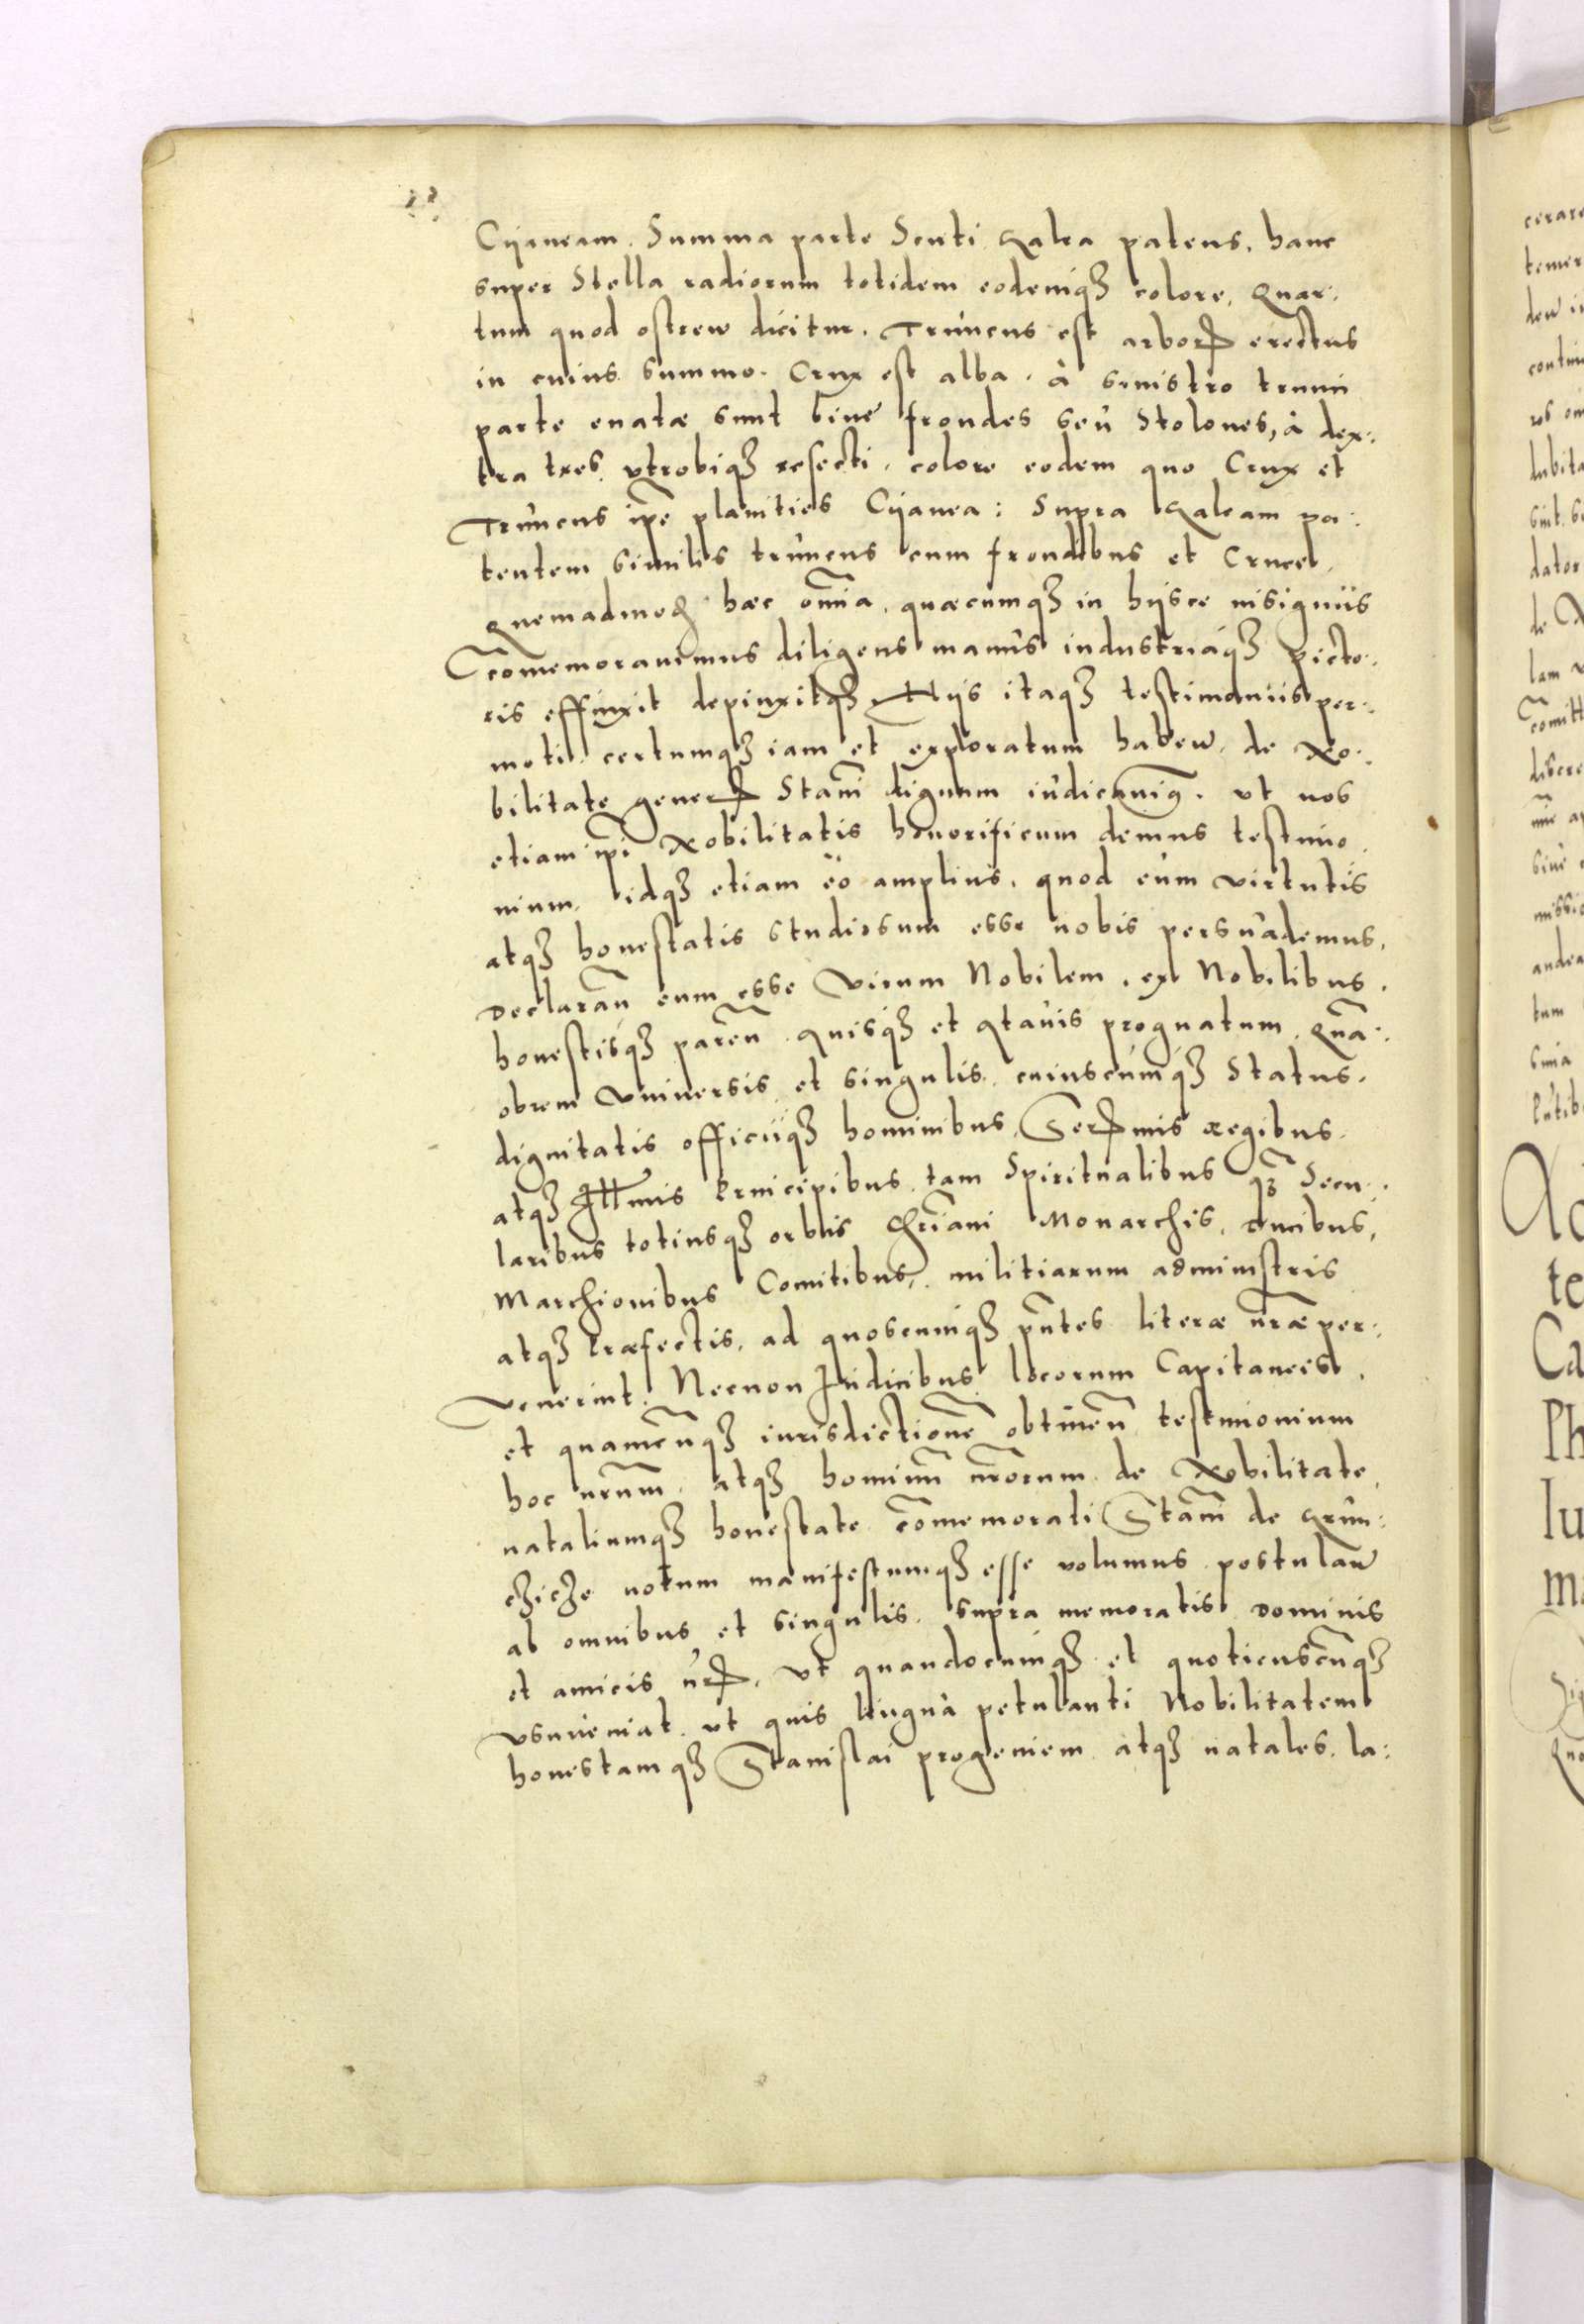 Cÿaneam. Summa parte Scuti Galea patens, hanc
super Stella radiorum totidem eodemqȝ colore, Quar:
tum quod ostrew dicitur. Truncus est arboꝝ erectus
in cuius summo. Crux est alba. à sinistro trunci
parte enatæ sunt binę frondes seu Stolones, à dex:
tra tres utrobiqȝ resecti. colore eodem quo Crux et
Truncus ipē planities Cÿanea: Supra Galeam pa:
tentem similis truncus cum frondibus et Cruce.
Quemadmoꝝ hæc om̄ia, quæcumqȝ in hÿsce insigniis
com̄emorauimus diligens manus industriáqȝ picto:
ris effinxit depinxitqȝ Hÿs itaqȝ testimoniis per:
moti certumqȝ iam et exploratum habew, de No:
bilitate generꝭ Stani dignum iudicauimꝰ. ut nos
etiam ipi Nobilitatis honorificum demus testimo
nium, idqȝ etiam eò amplius, quod eum virtutis
atqȝ honestatis studiosum esse nobis persuademus,
Declaran̄ eum esse Virum Nobilem, ex Nobilibus,
honestisqȝ paren̄ Auisqȝ et Atauis prognatum, Quā:
obrem Vniuersis et singulis, cuiuscúmqȝ Status,
dignitatis officiiqȝ hominibus, Serꝭmis Regibus,
atqȝ Illmis Principibus, tam Spiritualibus qȝ̄ Secu:
laribus totiusqȝ orbis Chr̄iani Monarchis, Ducibus,
Marchionibus Comitibus, militiarum administris
atqȝ Præfectis, ad quoscumqȝ pn̄tes literæ nr̄æ per:
venerint. Necnon Iudicibus locorum Capitaneis,
et quamcun̄qȝ iurisdictionē obtinen̄ testimonium
hoc nr̄um, atqȝ hominū nr̄orum de Nobilitate
nataliumqȝ honestate com̄emorati Stani de Grun:
cʒicʒe notum manifestumqȝ esse volumus postulaw
ab omnibus et singulis, supra memoratis Dominis
et amicis nr̄ꝭ, Vt quandocumqȝ et quotienscun̄qȝ
usuveniat ut quis linguà petulanti Nobilitatem
honestamqȝ Stanislai progeniem atqȝ natales, la: